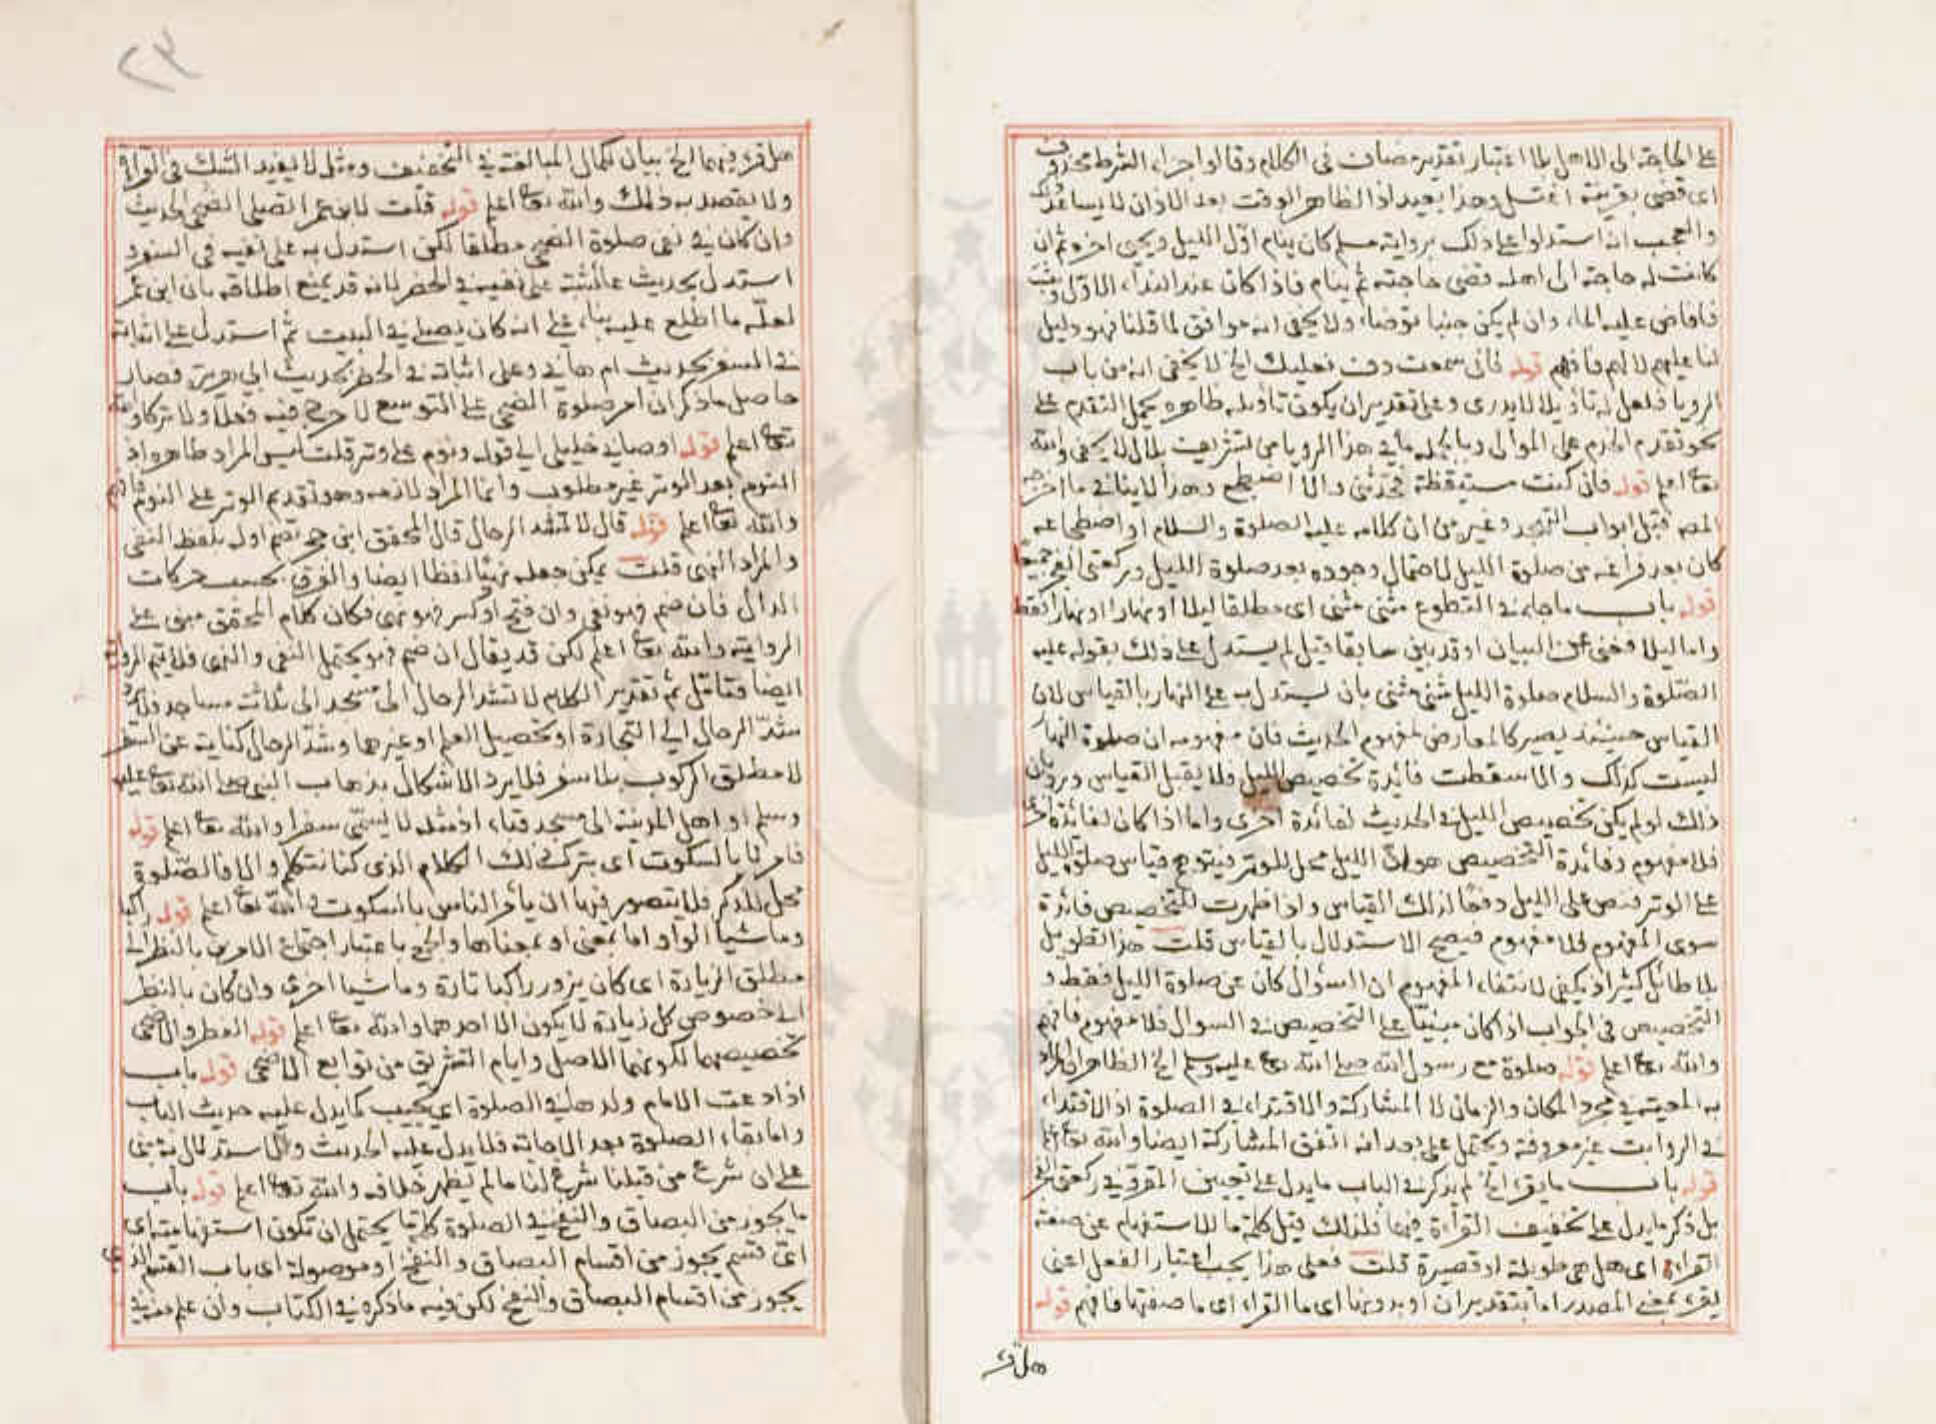 على الحاجة الى الاهل بلا اعتبار تقدير مضاف فى الكلام وقالوا جزاء الشرط محذوف
اى قضى بقرينة اغتسل وهذا بعيد اذ الظاهر الوقت بعد الاذان لا يساعد ذلك
والعجب انه استدلوا على ذلك برواية مسلم كان ينام اول الليل ويحيى اخره ثم ان
كانت له حاجة الى اهله قضى حاجته ثم ينام فاذا كان عند النداء الاول وثب
فافاض عليه الماء وان لم يكن جنبا توضاء ولا يخفى انه موافق لما قلنا فهو دليل
لنا عليهم لا لهم فافهم قوله فانى سمعت دف نعليك الخ لا يخفى انه من باب
الرويا فلعل له تاويلا لا يدرى وعلى تقدير ان يكون تأويله ظاهره يحمل التقدم على
نحو تقدم الخدم على الموالى وبالجملة ما فى هذا الرويا من تشريف بلال لا يخفى والله
تعا اعلم قوله فان كنت مستيقظة فحدثنى والا اضطجع وهذا لا ينافى ما اخرجه
المصـ قبل ابواب التهجد وغيره من ان كلامه عليه الصلوة والسلام او اضطجاعه
كان بعد فراغه من صلوة الليل لاحتمال وجوده بعد صلوة الليل وركعتى الفجر جميعا
قوله باب ما جاء فى التطوع مثنى مثنى اى مطلقا ليلا او نهارا او نهارا فقط
واما ليلا فغنى عن البيان او قد بين سابقا قيل لم يستدل على ذلك بقوله عليه
الصلوة والسلام صلوة الليل مثنى مثنى بان يستدل به على النهار بالقياس لان
القياس حينئذ يصير كالمعارض لمفهوم الحديث فان مفهومه ان صلوة النهار
ليست كذلك والا سقطت فائدة تخصيص الليل ولا يقبل القياس ورد بان
ذلك لو لم يكن تخصيص الليل فى الحديث لفائدة اخرى واما اذا كان لفائدة اخرى
فلا مفهوم وفائدة التخصيص هو ان الليل محل للوتر فيتوهم قياس صلوة الليل
على الوتر فنص على الليل دفعا لذلك القياس واذا ظهرت للتخصيص فائدة
سوى المفهوم فلا مفهوم فيصح الاستدلال بالقياس قلت هذا تطويل
بلا طائل كثير اذ يكفى لانتفاء المفهوم ان السؤال كان عن صلوة الليل فقط و
التخصيص فى الجواب اذا كان مبنيا على التخصيص فى السوال فلا مفهوم فافهم
والله تعا اعلم قوله صلوة مع رسول الله صلى الله تعا عليه وسلم الخ الظاهر ان المراد
به المعية فى مجرد المكان والزمان لا المشاركة والاقتداء فى الصلوة اذ الاقتداء
فى الرواتب غير معروفة ويحتمل على بعد انه اتفق المشاركة ايضا والله تعا اعلم
قوله باب ما يقرء الخ لم يذكر فى الباب ما يدل على تعيين المقرو فى ركعتى الفجر
بل ذكر ما يدل على تخفيف القراءة فيهما فلذلك قيل كلمة ما للاستفهام عن صفة
القراءة اى هل هى طويلة او قصيرة قلت فعلى هذا يجب اعتبار الفعل اعنى
يقرء بمعنى المصدر اما بتقدير ان او بدونها اى ما القراءة اى ما صفتها فافهم قوله
هل قرء
٢٣
هل قرء فيهما الخ بيان لكمال المبالغة فى التخفيف ومثله لا يفيد الشك فى القراءة
ولا يقصد به ذلك والله تعا اعلم قوله قلت لابن عمر اتصلى الضحى الحديث
وان كان فى نفى صلوة الضحى مطلقا لكن استدل به على نفيه فى السفر و
استدل بحديث عائشة على نفيه فى الحضر لانه قد يمنع اطلاقه بان ابن عمر
لعله ما اطلع عليه بناء على انه كان يصلى فى البيت ثم استدل على اثباته
فى السفر بحديث ام هانى وعلى اثباته فى الحضر بحديث ابى هريرة فصار
حاصل ما ذكر ان امر صلوة الضحى على التوسع لا حرج فيه فعلا ولا تركا والله
تعا اعلم قوله اوصانى خليلى الى قوله ونوم على وتر قلت ليس المراد ظاهره اذ
النوم بعد الوتر غير مطلوب وانما المراد لازمه وهو تقديم الوتر على النوم فافهم
والله تعا اعلم قوله قال لا تشد الرحال قال المحقق ابن حجر بضم اوله بلفظ النفى
والمراد النهى قلت يمكن جعله نهيا لفظا ايضا والفرق بحسب حركات
الدال فان ضم فهو نفى وان فتح او كسر فهو نهى فكان كلام المحقق مبنى على
الرواية والله تعا اعلم لكن قد يقال ان ضم فهو يحتمل النفى والنهى فلا يتم الرواية
ايضا فتامل ثم تقدير الكلام لا تشد الرحال الى مسجد الا الى ثلاث مساجد فلا يرد
شد الرحال الى التجارة او تحصيل العلم او غيرها وشد الرحال كناية عن السفر
لا مطلق الركوب بلا سفر فلا يرد الاشكال بذهاب النبى صلى الله تعا عليه
وسلم او اهل المدينة الى مسجد قباء اذ مثله لا يسمى سفرا والله تعا اعلم قوله
فامرنا بالسكوت اى بترك ذلك الكلام الذى كنا نتكلم والا فالصلوة
محل للذكر فلا يتصور فيها ان يامر الناس بالسكوت والله تعا اعلم قوله راكبا
وماشيا الواو اما بمعنى او بمعناها والجمع باعتبار اجتماع الامرين بالنظر الى
مطلق الزيارة اى كان يزور راكبا تارة وماشيا اخرى وان كان بالنظر
الى خصوص كل زيارة لا يكون الا احدهما والله تعا اعلم قوله الفطر والاضحى
تخصيصهما لكونهما الاصل وايام التشريق من توابع الاضحى قوله باب
اذا دعت الامام ولدها فى الصلوة اى يجيب كما يدل عليه حديث الباب
واما بقاء الصلوة بعد الاجابة فلا يدل عليه الحديث والاستدلال به بنى
على ان شرع من قبلنا شرع لنا ما لم يظهر خلافه والله تعا اعلم قوله باب
ما يجوز من البصاق والنفخ فى الصلوة كلمة ما يحتمل ان تكون استفهامية اى
اى قسم يجوز من اقسام البصاق والنفخ او موصولة اى باب القسم الذى
يجوز من اقسام البصاق والنفخ لكن فيه ما ذكره فى الكتاب وان علم منه فى